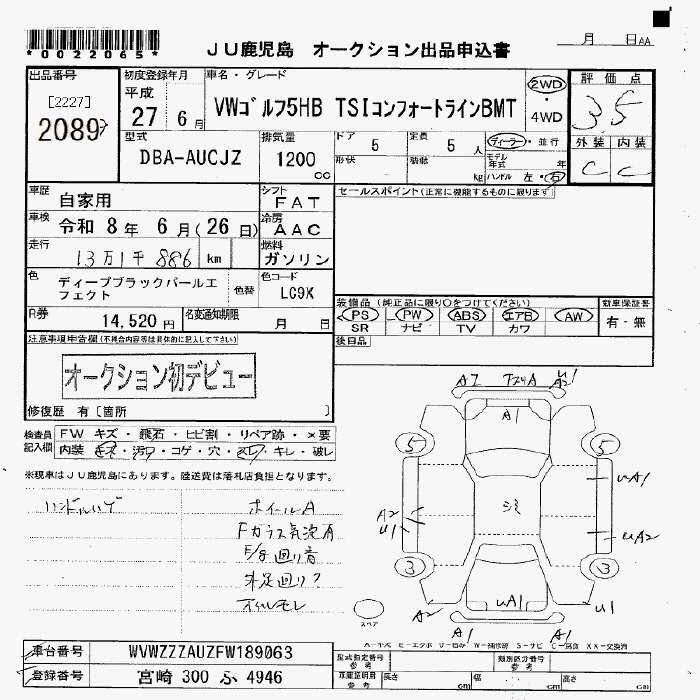 *0022065*
JU鹿児島 オークション出品申込書
月 日AA
出品番号
[2227]
2089
初度登録年月
平成
27 6月
車名・グレード
VWゴルフ5HB TSIコンフォートラインBMT
2WD
・
4WD
評価点
3.5
外装 内装
C C
型式
DBA-AUCJZ
排気量
1200
cc
ドア 5
定員 5 人
形状
積載 kg
ディーラー・並行
モデル年式 年
ハンドル 左・右
車歴 自家用
シフト FAT
セールスポイント(正常に機能するものに限ります)
車検 令和 8年 6月(26日)
冷房 AAC
走行 13万1千886 km
燃料 ガソリン
色 ディープブラックパールエフェクト
色替
色コード LC9K
R券 14,520円
名変通知期限 月 日
装備品(純正品に限り○をつけてください)
PS PW ABS エアB AW
SR ナビ TV カワ
新車保証書
有・無
後日品
注意事項申告欄(不具合内容等は具体的に記入して下さい)
オークション初デビュー
修復歴 有〔箇所 〕
検査員記入欄
FW キズ・飛石・ヒビ割・リペア跡・×要
内装 キズ・汚れ・コゲ・穴・スレ・キレ・破レ
※現車はJU鹿児島にあります。陸送費は落札店負担となります。
ハンドルハゲ
ホイールA
Fガラス気泡有
オイルモレ
A1
A1
5 5
uA1
A2
u1
uA2
3 3
uA1
A2
u1
A1 A1
スペア
車台番号 WVWZZZAUZFW189063
登録番号 宮崎 300 ふ 4946
型式指定番号
参考
類別区分番号
参考
車庫証明用
参考
長さ cm
幅 cm
高さ cm